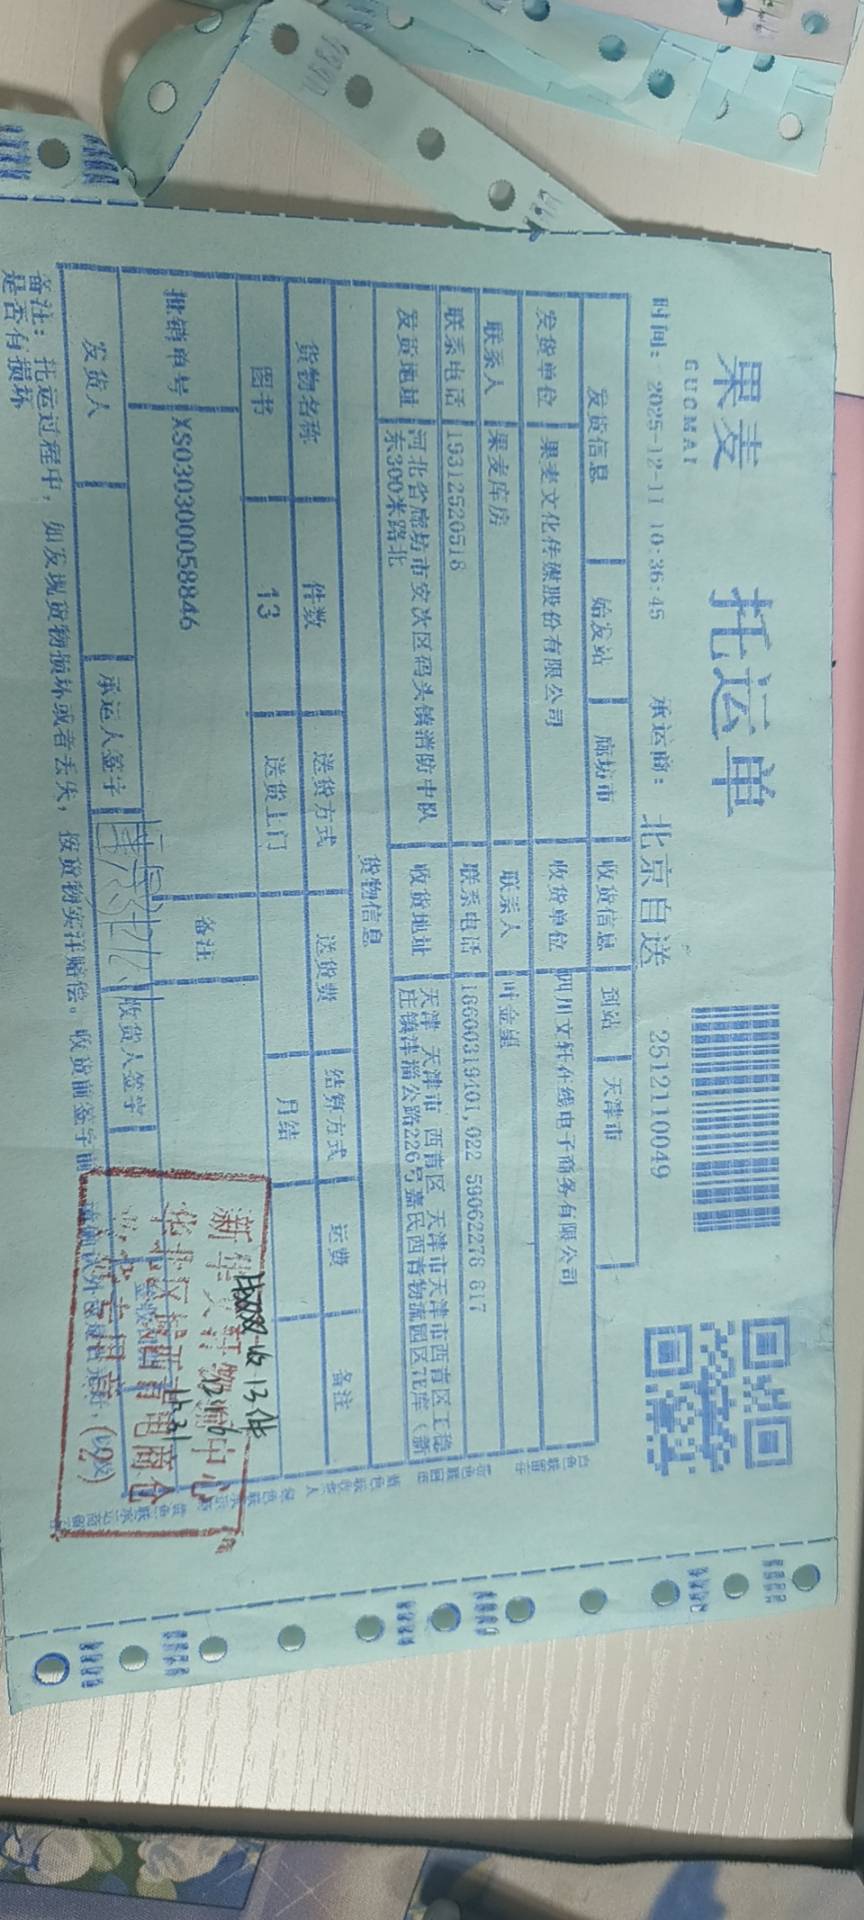 果麦 托运单
GUOMAI
2512110049
时间: 2025-12-11 10:36:45 承运商: 北京自送
发货信息 始发站 廊坊市 收货信息 到站 天津市
发货单位 果麦文化传媒股份有限公司 收货单位 四川文轩在线电子商务有限公司
联系人 果麦库房 联系人 叶金星
联系电话 19312520518 联系电话 18600319401,022 59062278 817
发货地址 河北省廊坊市安次区码头镇消防中队 收货地址 天津 天津市 西青区 天津市天津市西青区王稳
东300米路北 庄镇津淄公路226号嘉民西青物流园区7E库（新
货物信息
货物名称 件数 送货方式 送货费 结算方式 运费 备注
图书 13 送货上门 月结
批销单号 XS030300058846 备注
发货人 承运人签字 收货人签字
备注: 托运过程中, 如发现货物损坏或者丢失, 按货物实洋赔偿。收货前签字前
是否有损坏
新华文轩物流中心
华北区域西青电商仓
业务专用章
(2)
收13件